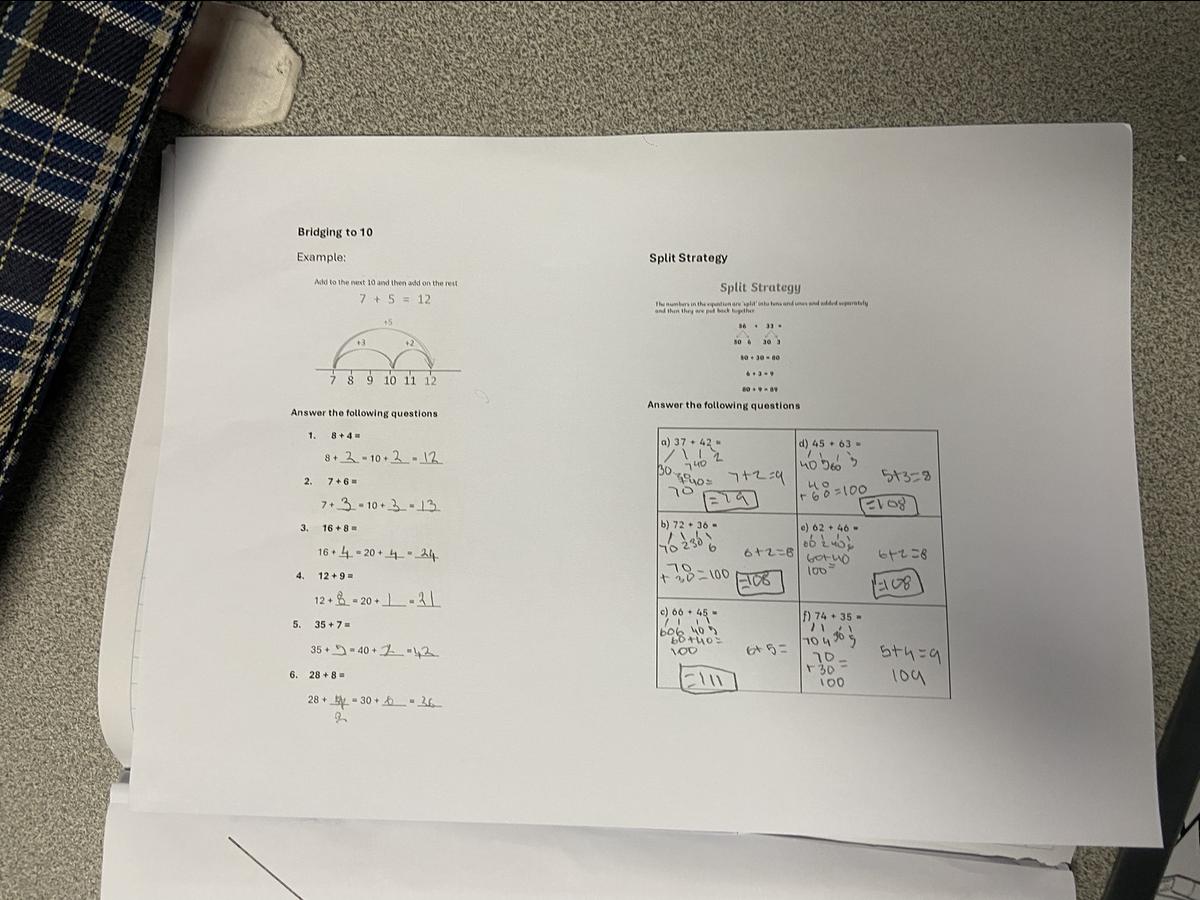 Bridging to 10
Example:
Add to the next 10 and then add on the rest
7 + 5 = 12
+5
+3 +2
7 8 9 10 11 12
Answer the following questions
1. 8 + 4 =
8 + 2 = 10 + 2 = 12
2. 7 + 6 =
7 + 3 = 10 + 3 = 13
3. 16 + 8 =
16 + 4 = 20 + 4 = 24
4. 12 + 9 =
12 + 8 = 20 + 1 = 21
5. 35 + 7 =
35 + 5 = 40 + 2 = 42
6. 28 + 8 =
28 + = 30 + 6 = 36
2
Split Strategy
Split Strategy
The numbers in the equation are 'split' into tens and ones and added separately
and then they are put back together
56 + 33 =
50 6 30 3
50 + 30 = 80
6 + 3 = 9
80 + 9 = 89
Answer the following questions
a) 37 + 42 =
30 7 40 2
40=
70
7+2=9
=79
d) 45 + 63 =
40 5 60 3
40
+60=100
5+3=8
=108
b) 72 + 36 =
70 2 30 6
70
+30=100
6+2=8
=108
e) 62 + 46 =
60 2 40 6
60+40
100=
6+2=8
=108
c) 66 + 45 =
60 6 40 5
60+40=
100
6+5=
=111
f) 74 + 35 =
70 4 30 5
70=
+30
100
5+4=9
109